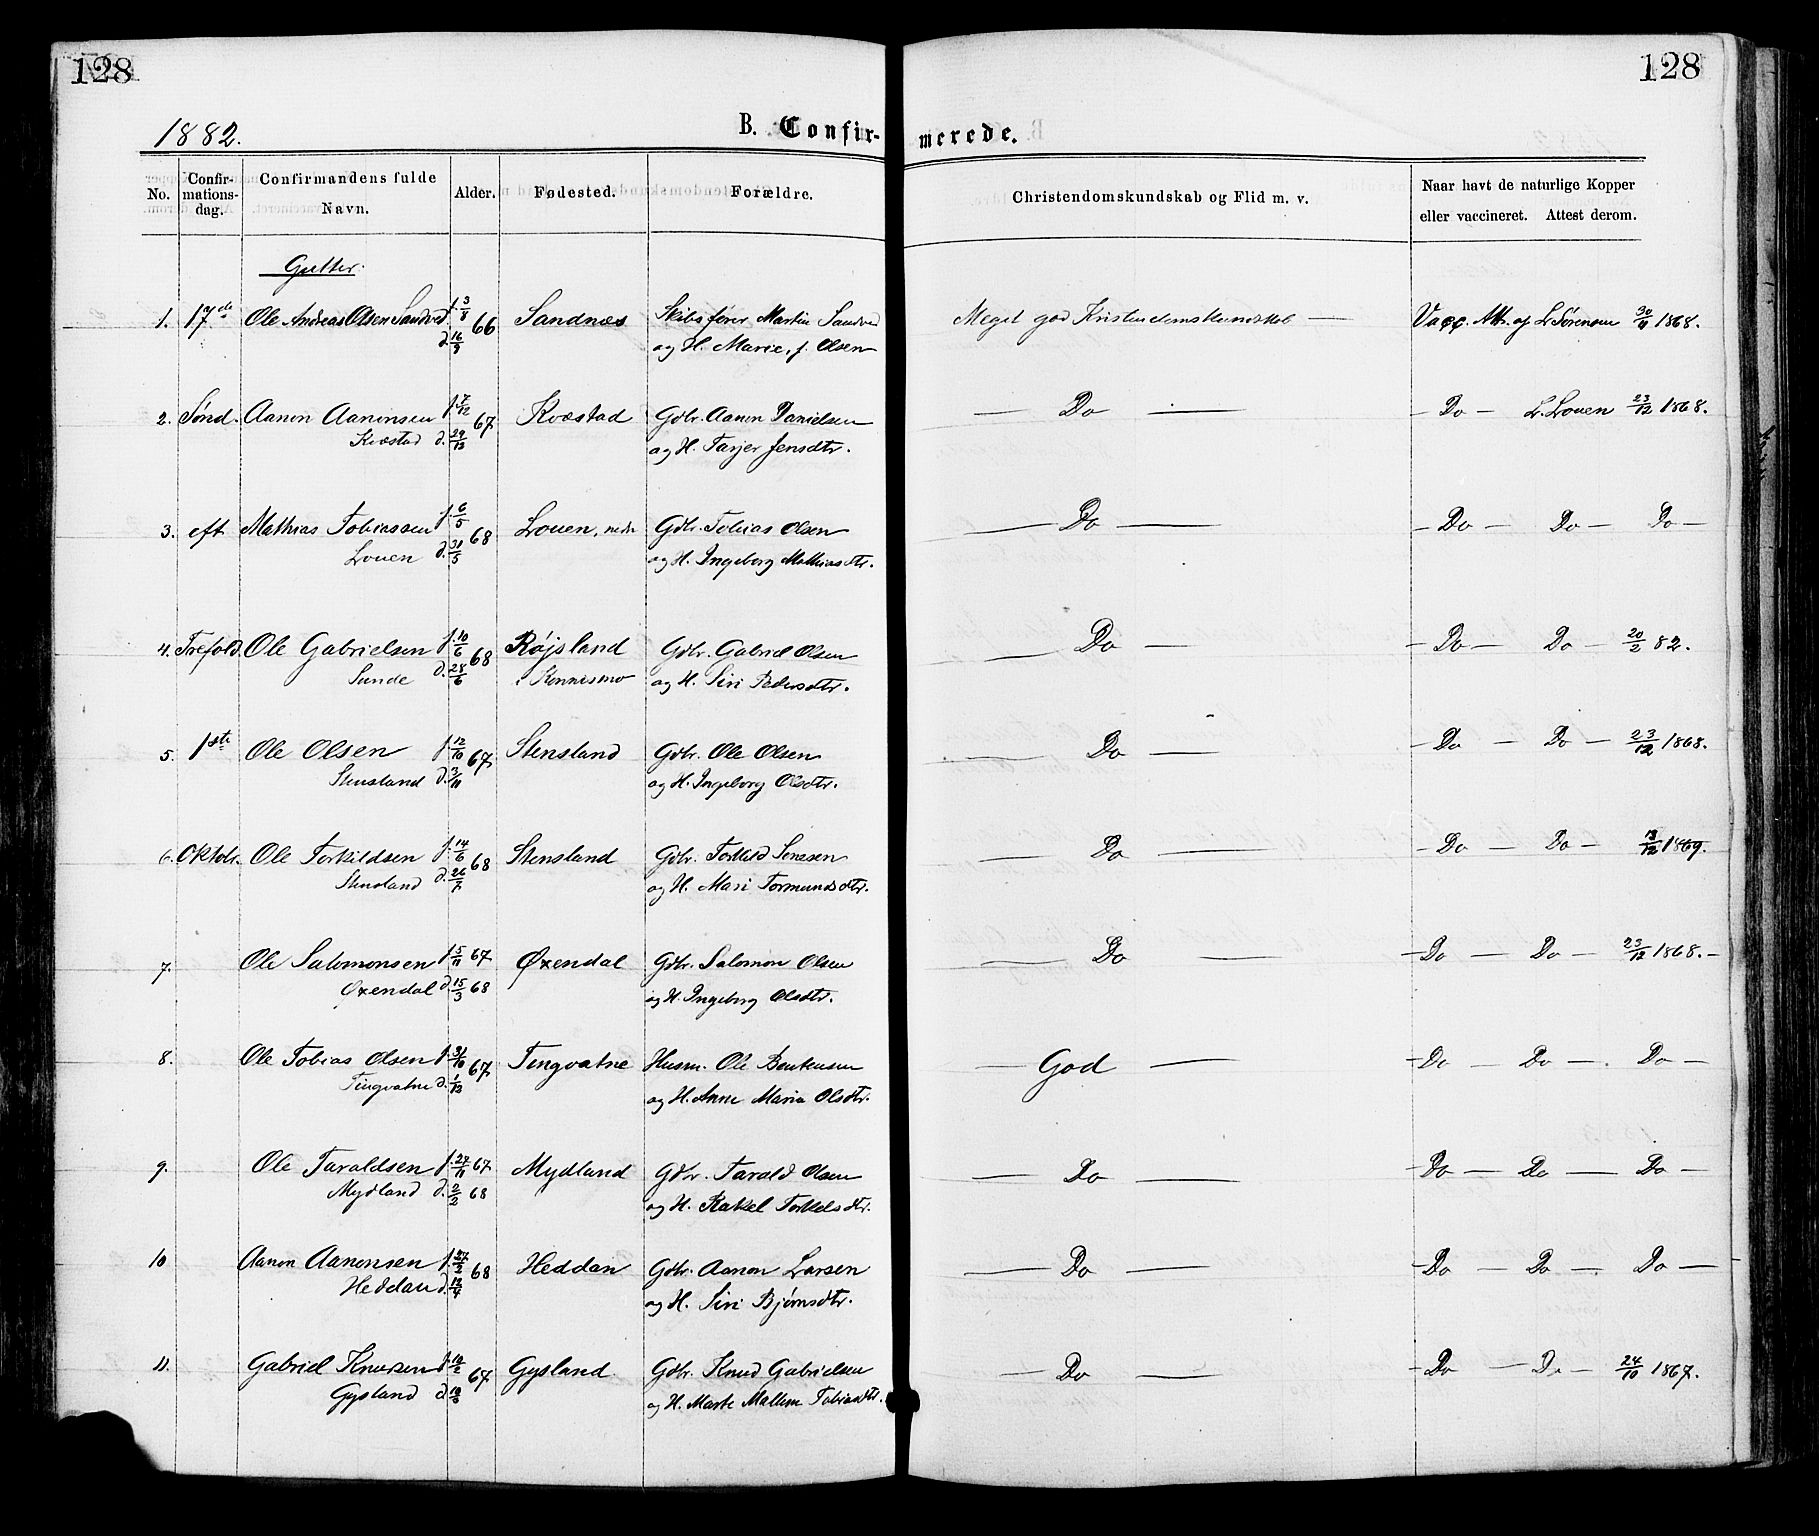 128
128
1882.
B. Confir-
merede.
No.
Confir-
mations-
dag.
Confirmandens fulde
Navn.
Alder.
Fødested.
Forældre.
Christendomskundskab og Flid m. v.
Naar havt de naturlige Kopper
eller vaccineret. Attest derom.
Gutter.
1. 17de Ole Andreas Olsen Sandved f. 3/8 66 Sandnæs Skibsfører Martin Sandved Meget god Kristendomskundskab — Vacc. Att. af L. Sørensen 30/11 1868.
d. 16/9 og H. Marie, f. Olsen
2. Sønd. Aanon Aanonsen f. 7/12 67 Kvæstad Gdbr. Aanon Danielsen — Do — — Do — L. Louen 23/12 1868.
Kvæstad d. 29/12 og H. Tarjer Jensdtr.
3. eft. Mathias Tobiassen f. 6/5 68 Louen, nedr. Gdbr. Tobias Olsen — Do — — Do — Do — Do —
Louen d. 31/5 og H. Ingeborg Mathiasdtr.
4. Trefold. Ole Gabrielsen f. 10/6 68 Røjsland Gdbr. Gabriel Olsen — Do — — Do — Do — 20/2 82.
Sunde d. 28/6 i Konnismo og H. Siri Pedersdtr.
5. 1ste Ole Olsen f. 12/10 67 Stensland Gdbr. Ole Olsen — Do — — Do — Do — 23/12 1868.
Stensland d. 3/11 og H. Ingeborg Olsdtr.
6. Oktobr. Ole Torkildsen f. 14/6 68 Stensland Gdbr. Torkild Jenssen — Do — — Do — Do — 13/12 1869.
Stensland d. 26/7 og H. Mari Tormundsdtr.
7. Ole Salomonsen f. 5/11 67 Øxendal Gdbr. Salomon Olsen — Do — — Do — Do — 23/12 1868. —
Øxendal d. 15/3 68 og H. Ingeborg Olsdtr.
8. Ole Tobias Olsen f. 31/10 67 Tingvatne Husm. Ole Bentensen — God — — Do — Do — Do —
Tingvatne d. 1/12 og H. Anne Maria Olsdtr.
9. Ole Taraldsen f. 27/11 67 Mydland Gdbr. Tarald Olsen — Do — — Do — Do — Do —
Mydland d. 2/2 68 og H. Rakel Torkelsdtr.
10 Aanon Aanonsen f. 27/2 68 Heddan Gdbr. Aanon Larsen — Do — — Do — Do — Do —
Heddan d. 12/4 og H. Siri Bjørnsdtr.
11. Gabriel Knudsen f. 10/2 67 Gysland Gdbr. Knud Gabrielsen — Do — — Do — Do — 24/10 1867.
Gysland d. 10/3 og H. Marte Mallene Tobiasdtr.